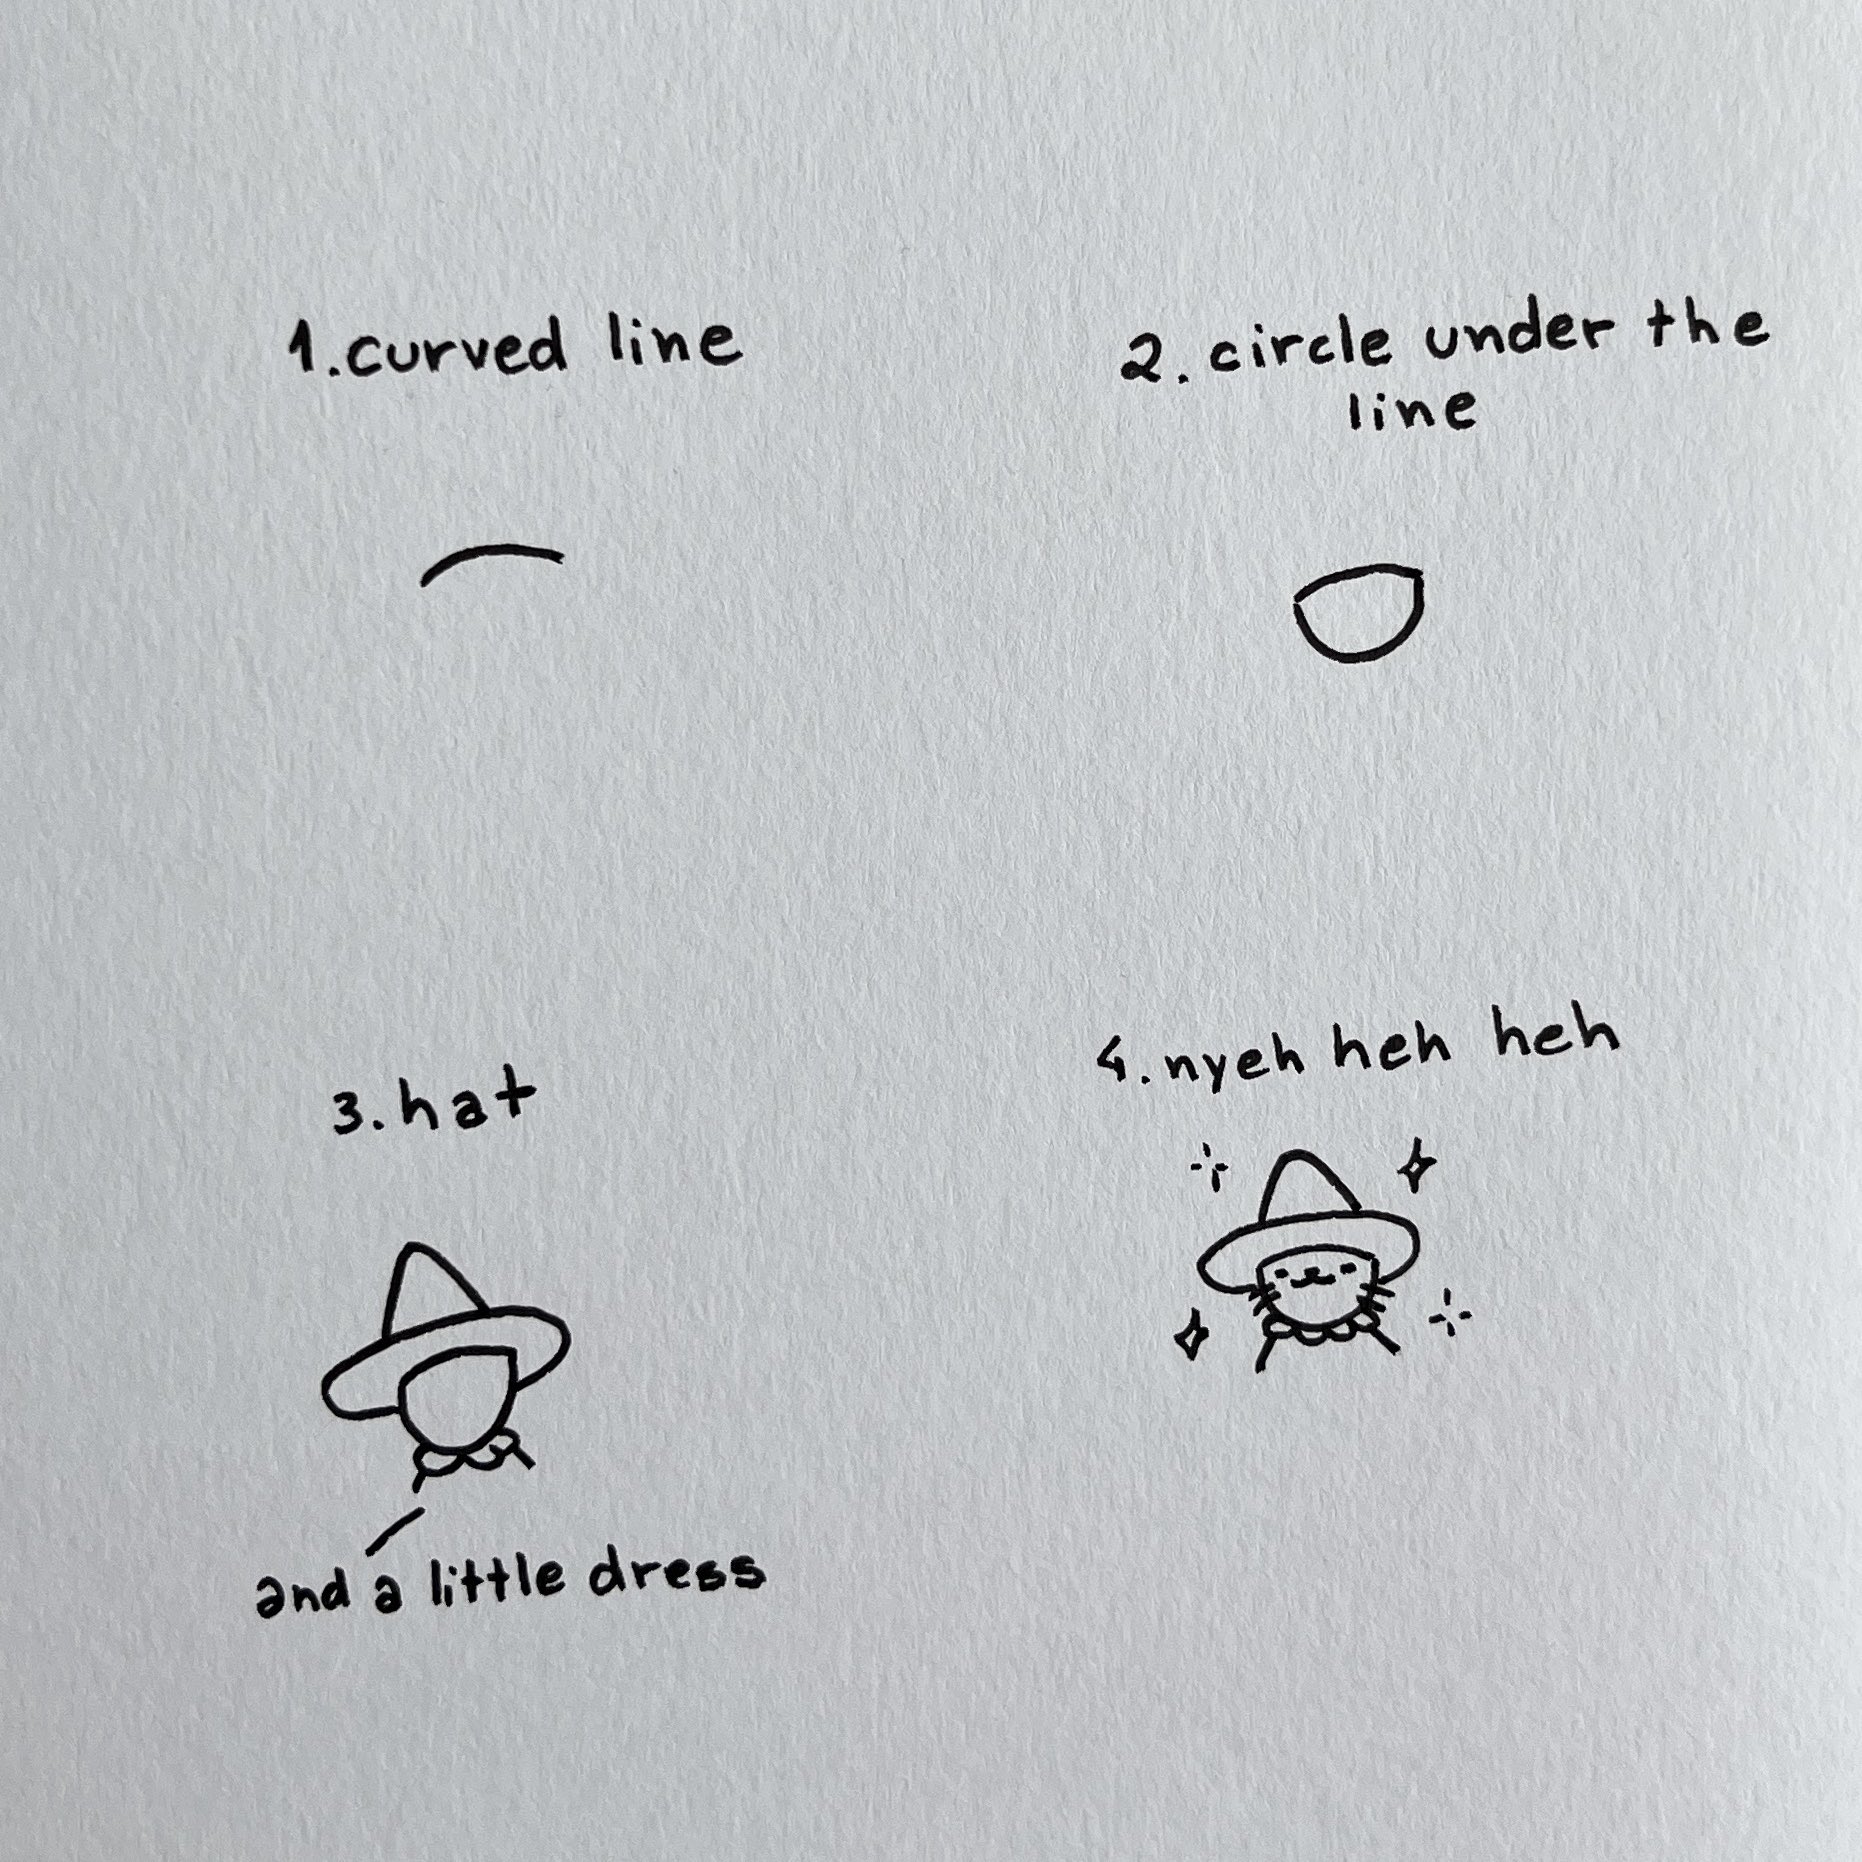 1. curved line
2. circle under the
line
3. hat
and a little dress
4. nyeh heh heh